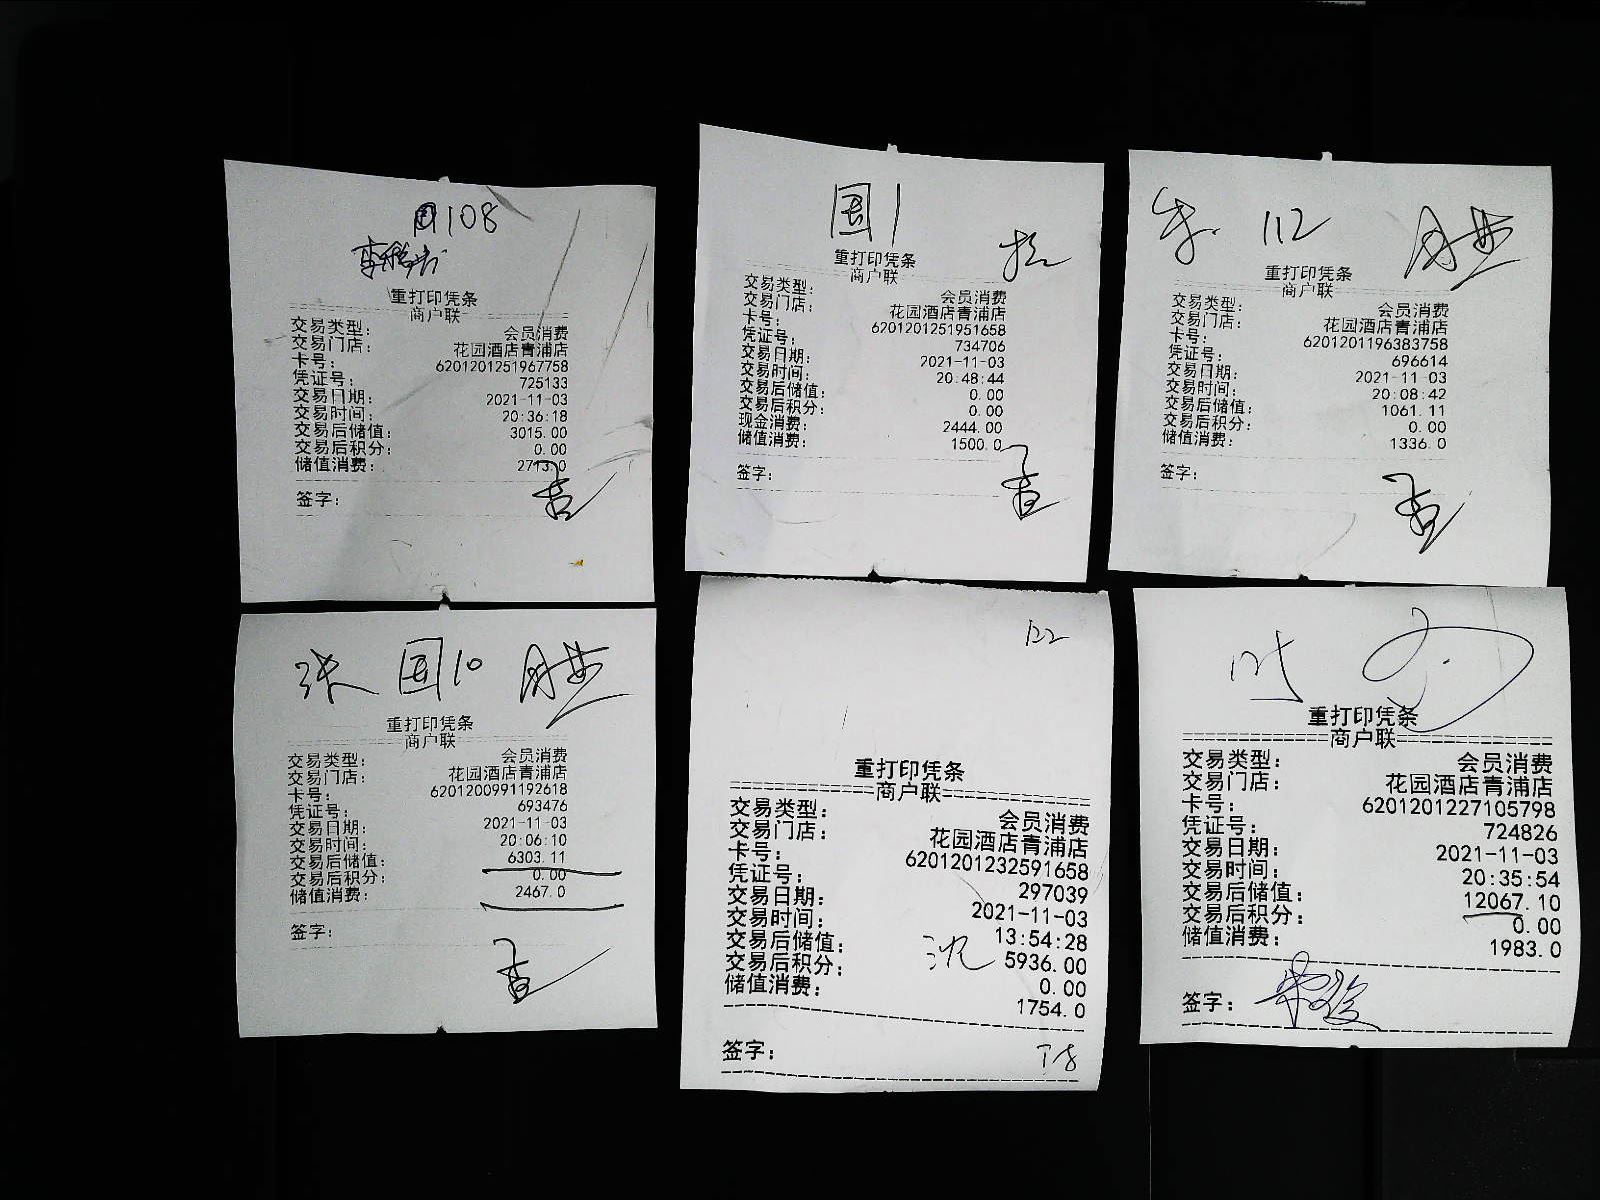 国108
重打印凭条
商户联
交易类型： 会员消费
交易门店： 花园酒店青浦店
卡号： 6201201251967758
凭证号： 725133
交易日期： 2021-11-03
交易时间： 20:36:18
交易后储值： 3015.00
交易后积分： 0.00
储值消费： 2713.0
签字：
国1
重打印凭条
商户联
交易类型： 会员消费
交易门店： 花园酒店青浦店
卡号： 6201201251951658
凭证号： 734706
交易日期： 2021-11-03
交易时间： 20:48:44
交易后储值： 0.00
交易后积分： 0.00
现金消费： 2444.00
储值消费： 1500.0
签字：
112
重打印凭条
商户联
交易类型： 会员消费
交易门店： 花园酒店青浦店
卡号： 6201201196383758
凭证号： 696614
交易日期： 2021-11-03
交易时间： 20:08:42
交易后储值： 1061.11
交易后积分： 0.00
储值消费： 1336.0
签字：
张 国10
重打印凭条
商户联
交易类型： 会员消费
交易门店： 花园酒店青浦店
卡号： 6201200991192618
凭证号： 693476
交易日期： 2021-11-03
交易时间： 20:06:10
交易后储值： 6303.11
交易后积分： 0.00
储值消费： 2467.0
签字：
122
重打印凭条
商户联
交易类型： 会员消费
交易门店： 花园酒店青浦店
卡号： 6201201232591658
凭证号： 297039
交易日期： 2021-11-03
交易时间： 13:54:28
交易后储值： 5936.00
交易后积分： 0.00
储值消费： 1754.0
沈
签字：
重打印凭条
商户联
交易类型： 会员消费
交易门店： 花园酒店青浦店
卡号： 6201201227105798
凭证号： 724826
交易日期： 2021-11-03
交易时间： 20:35:54
交易后储值： 12067.10
交易后积分： 0.00
储值消费： 1983.0
签字：